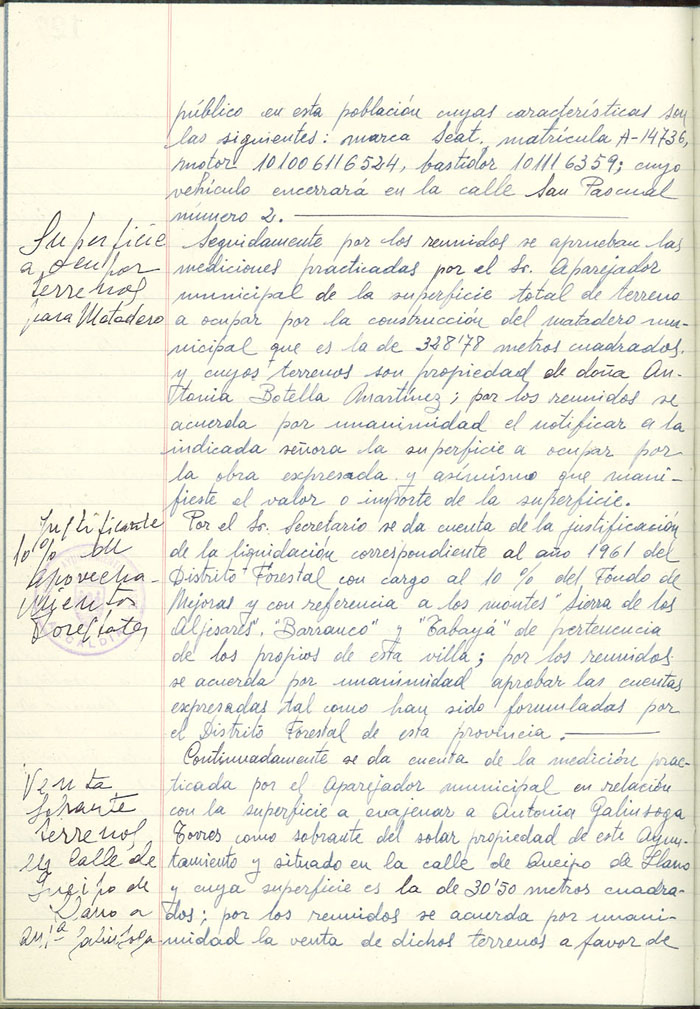 público en esta población cuyas características son
las siguientes: marca Seat, matrícula A-14736,
motor 101006116524, bastidor 101116359; cuyo
vehículo encerrará en la calle San Pascual
número 2.
Superficie
a ocupar
terrenos
para Matadero
Seguidamente por los reunidos se aprueban las
mediciones practicadas por el Sr. Aparejador
municipal de la superficie total de terreno
a ocupar por la construcción del matadero mu-
nicipal que es la de 328'78 metros cuadrados.
y cuyos terrenos son propiedad de doña An-
tonia Botella Martínez; por los reunidos se
acuerda por unanimidad el notificar a la
indicada señora la superficie a ocupar por
la obra expresada y asimismo que mani-
fieste el valor o importe de la superficie.
Justificante
10% de
Aprovecha-
mientos
Forestales
Por el Sr. Secretario se da cuenta de la justificación
de la liquidación correspondiente al año 1961 del
Distrito Forestal con cargo al 10 % del Fondo de
Mejoras y con referencia a los montes "Sierra de los
Aljisares", "Barranco" y "Tabayá" de pertenencia
de los propios de esta villa; por los reunidos
se acuerda por unanimidad aprobar las cuentas
expresadas tal como han sido formuladas por
el Distrito Forestal de esta provincia.
Venta
sobrante
terrenos
en Calle de
Queipo de
Llano a
Ant.ª Galinsoga
Continuadamente se da cuenta de la medición prac-
ticada por el Aparejador municipal en relación
con la superficie a enajenar a Antonia Galinsoga
Torres como sobrante del solar propiedad de este Ayun-
tamiento y situado en la calle de Queipo de Llano
y cuya superficie es la de 30'50 metros cuadra-
dos; por los reunidos se acuerda por unani-
midad la venta de dichos terrenos a favor de